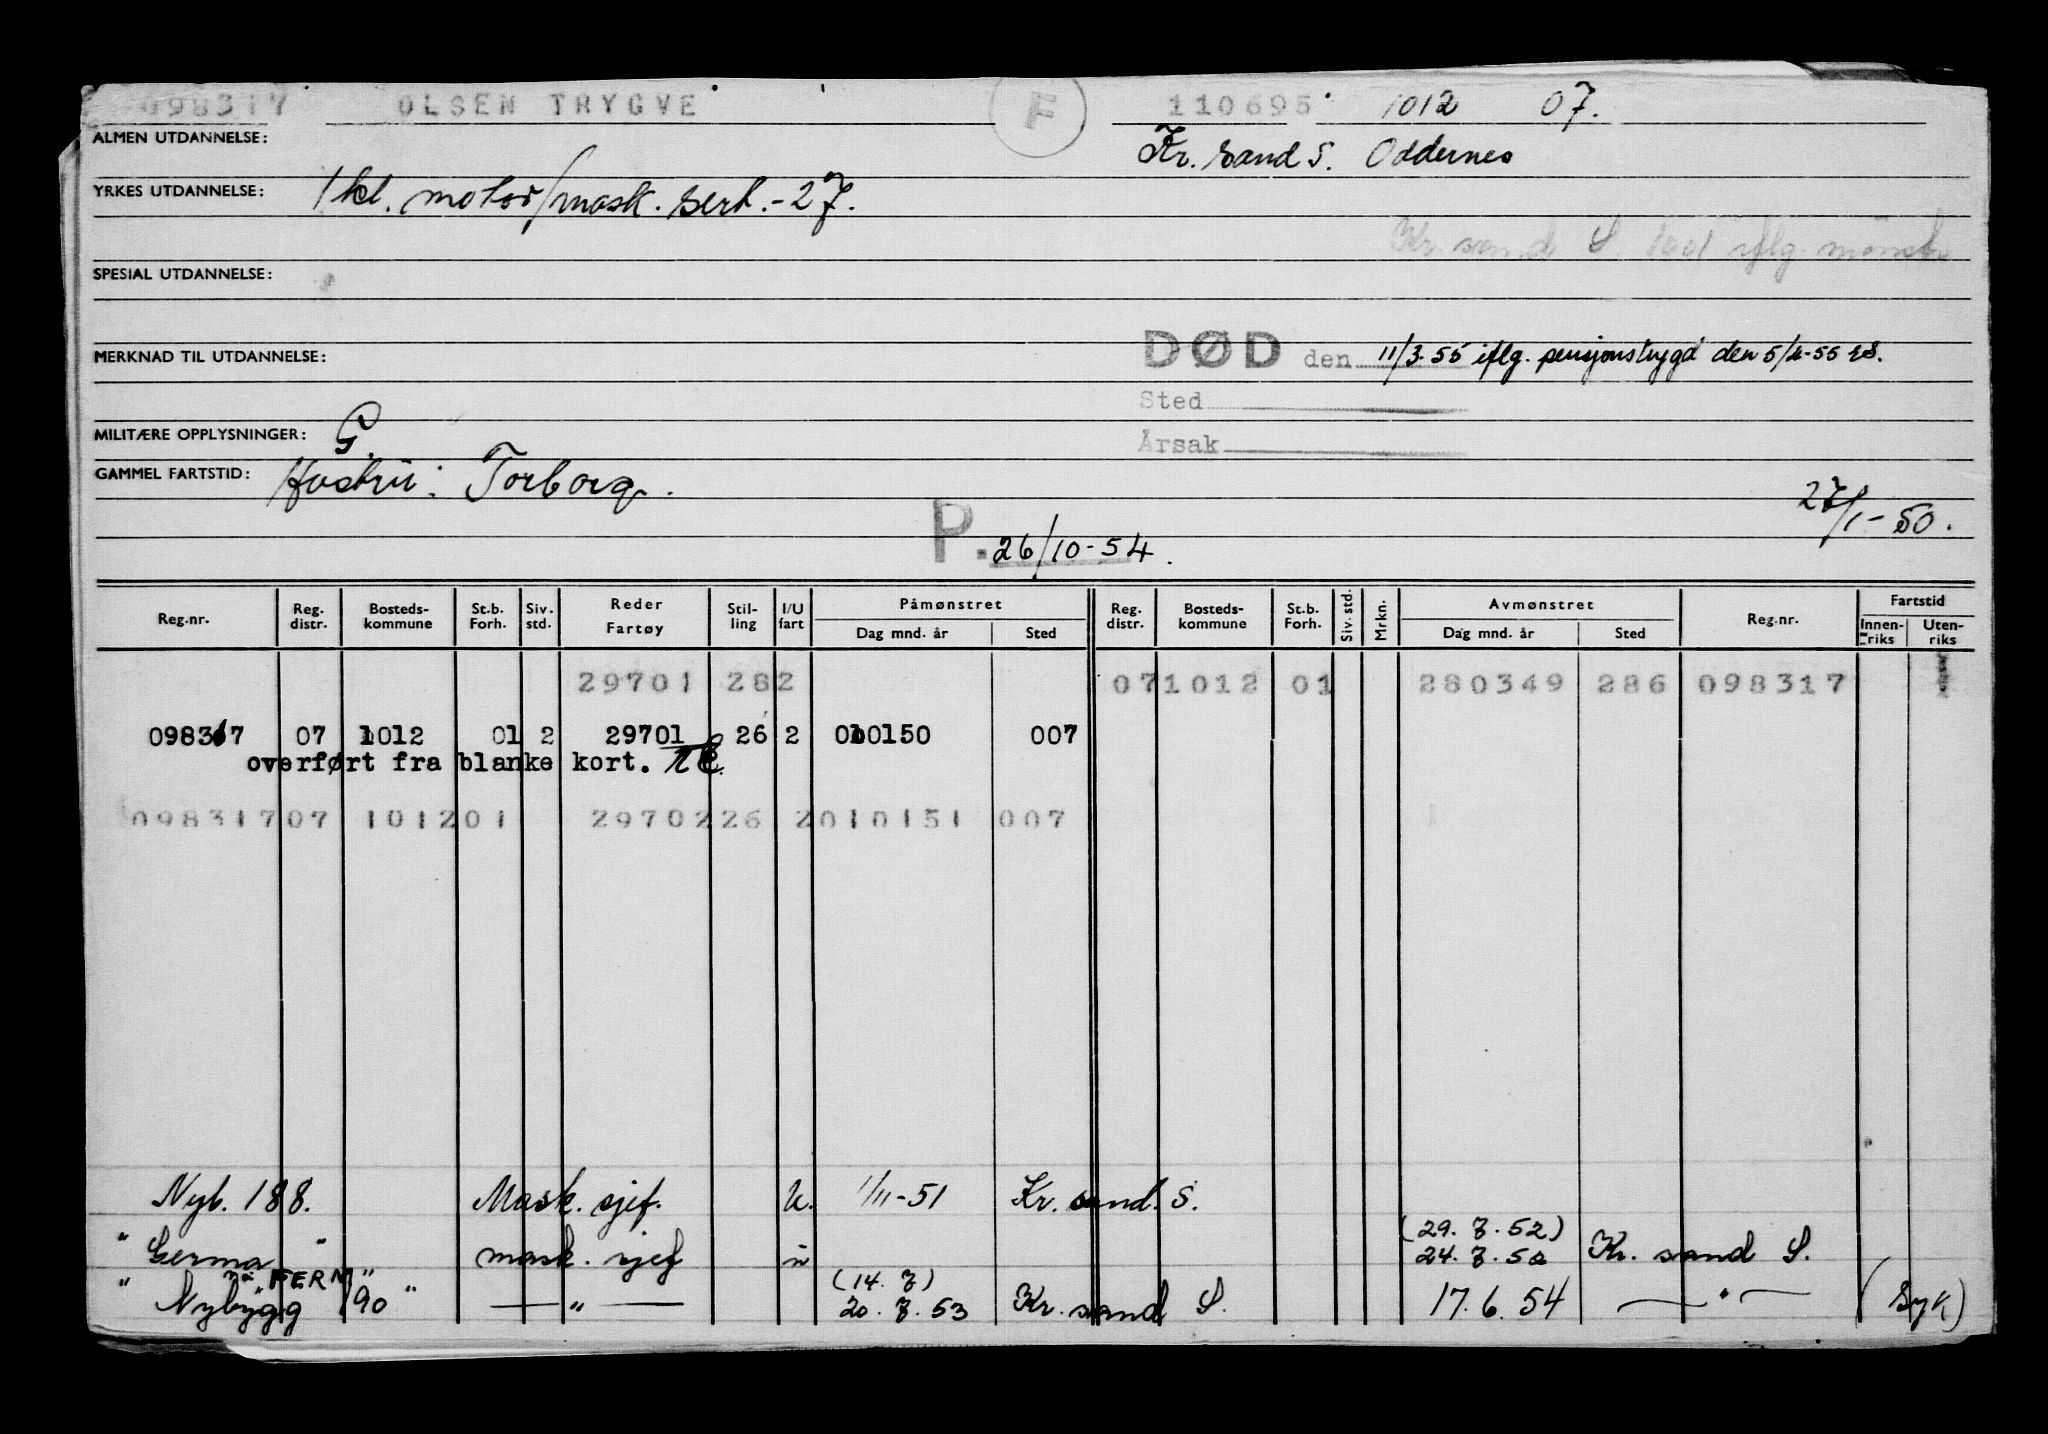 098317 OLSEN TRYGVE F 110695 1012 07.
ALMEN UTDANNELSE: Kr. sand S. Oddernes
YRKES UTDANNELSE: 1 kl. motor/mask. sert.-27.
Kr. sand S 1001 iflg. mønstr
SPESIAL UTDANNELSE:
MERKNAD TIL UTDANNELSE: DØD den 11/3.55 iflg. pensjonstrygd den 5/4-55
Sted
MILITÆRE OPPLYSNINGER: G. Årsak
GAMMEL FARTSTID: Hustru: Torborg.
27/1-50.
P. 26/10-54.
Reg.nr. Reg. distr. Bosteds-kommune St.b. Forh. Siv. std. Reder Fartøy Stil-ling I/U fart Påmønstret Dag mnd. år Sted Reg. distr. Bosteds-kommune St.b. Forh. Siv. std. Mrkn. Avmønstret Dag mnd. år Sted Reg.nr. Fartstid Innen-riks Uten-riks
29701 282 07 1012 01 280349 286 098317
098317 07 1012 01 2 29701 26 2 010150 007
overført fra blanke kort.
098317 07 1012 01 29702 26 2 010151 007
Nyb. 188. Mask. sjef. u. 1/11-51 Kr. sand. S.
(29. 7. 52)
" Germa " mask. sjef u 24. 7. 52 Kr. sand S.
nå "FERM" (14. 7)
" Nybygg 190 " — " — 20. 7. 53 Kr. sand S. 17. 6. 54 — " — (syk)